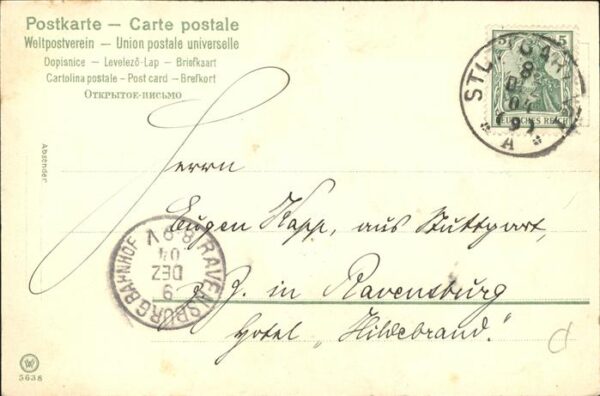 Postkarte — Carte postale
Weltpostverein — Union postale universelle
Dopisnice — Levelező-Lap — Briefkaart
Cartolina postale — Post card — Brefkort
Открытое-письмо
5
STUTTGART
8
DEZ
04
DEUTSCHES REICH
A
Absender:
Herrn
Eugen Kapp, aus Stuttgart,
z. Z. in Ravensburg
Hotel „Hildebrand."
RAVENSBURG BAHNHOF
9
DEZ
04
8-9V
5638